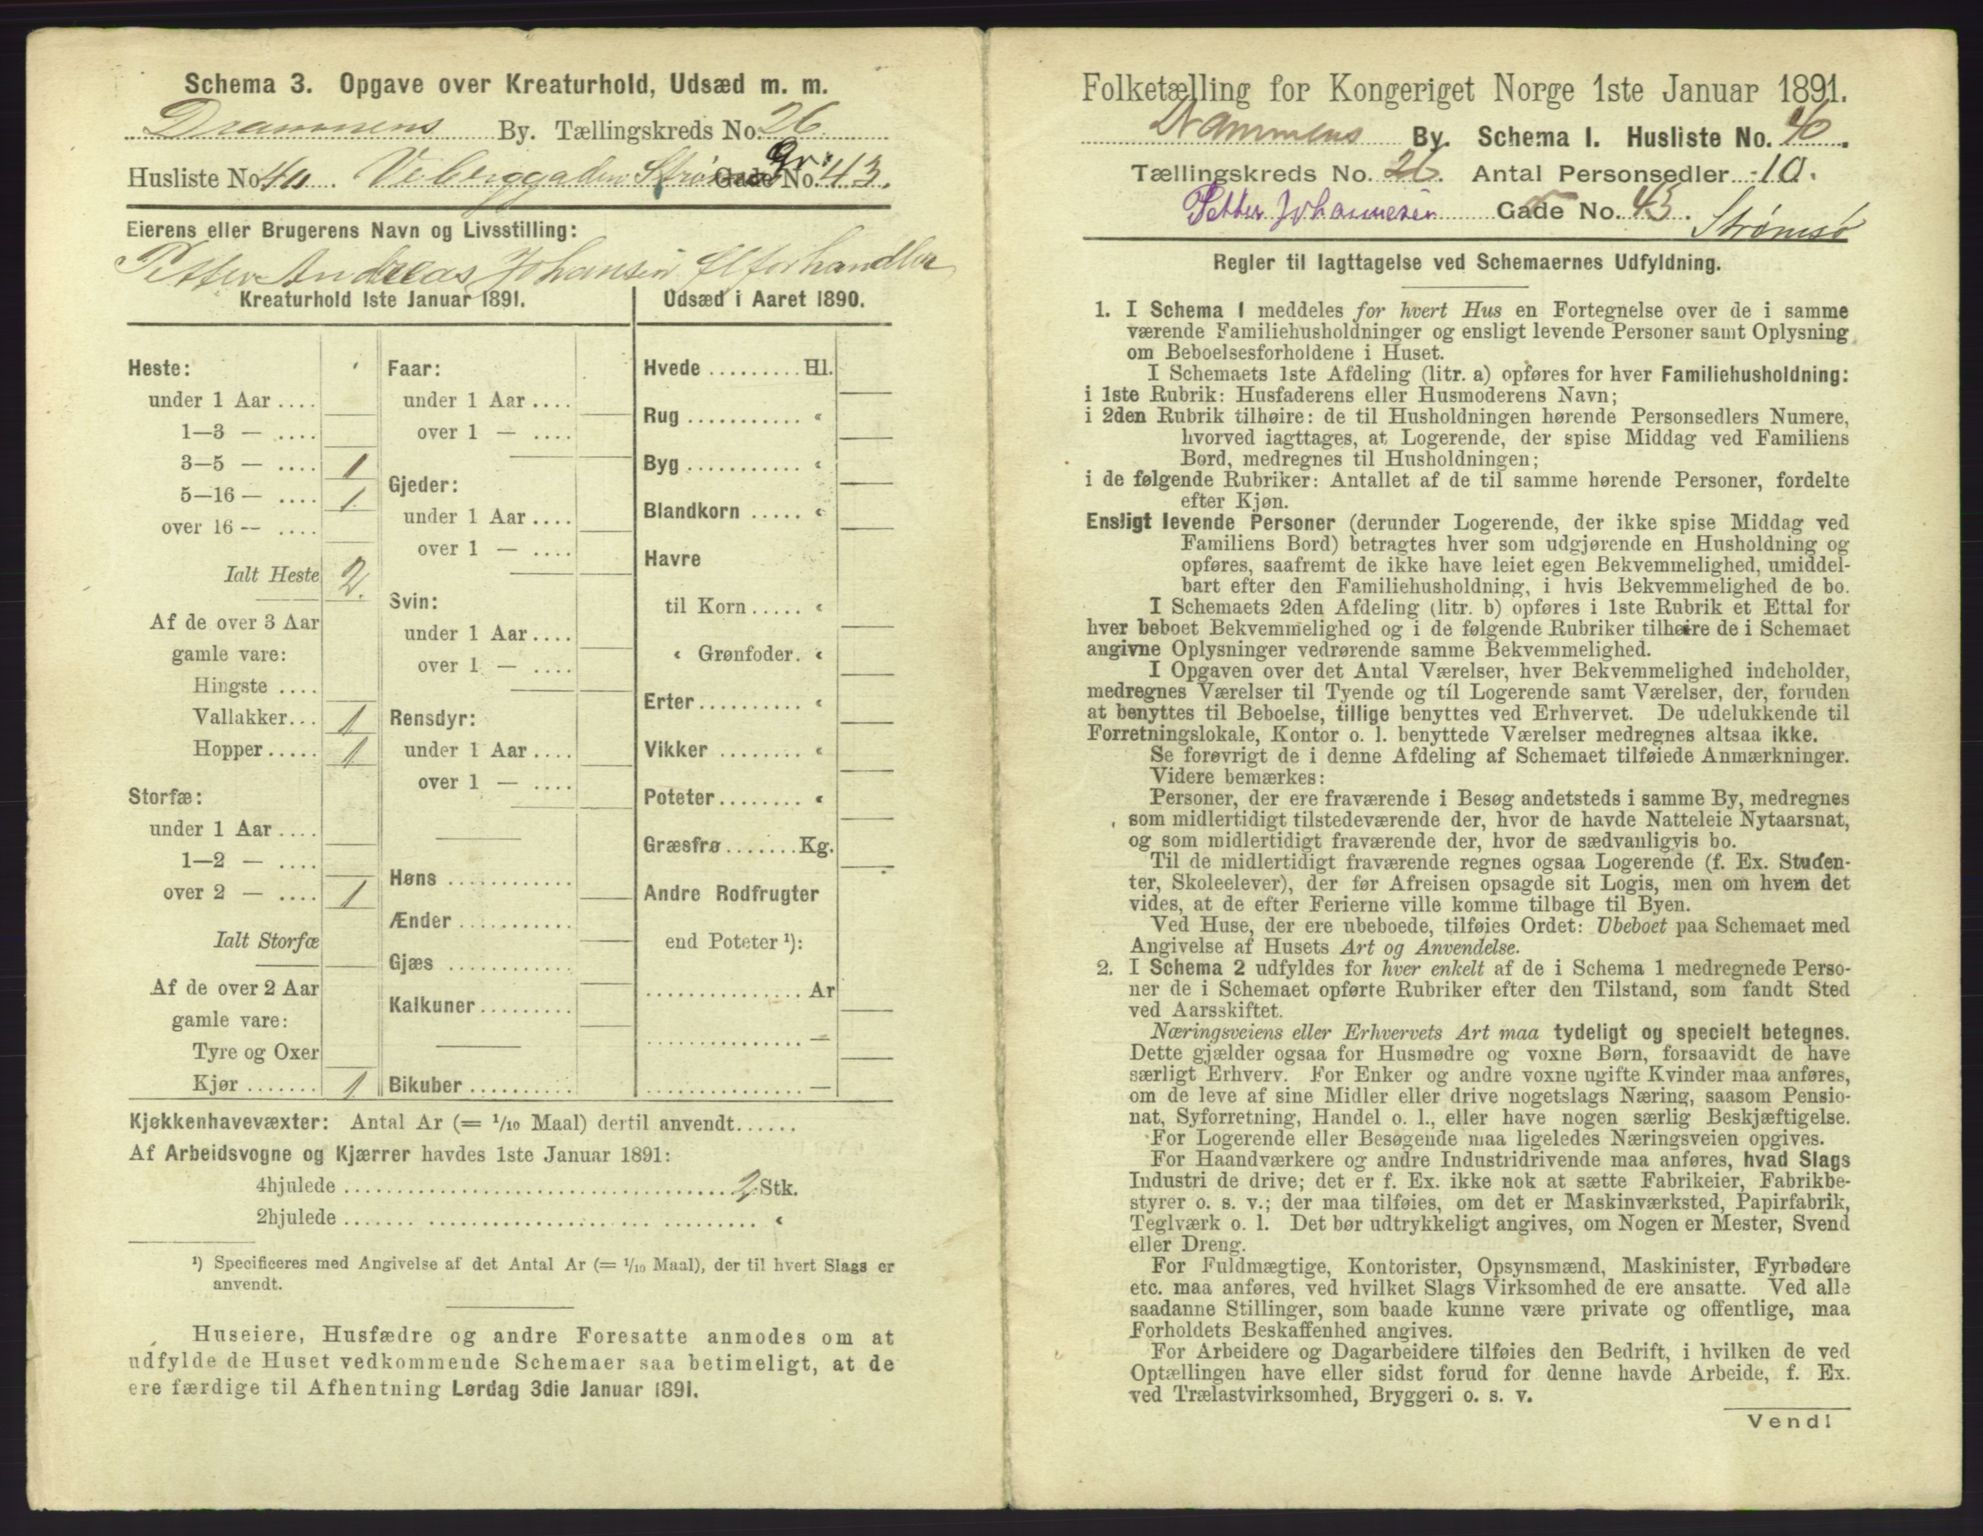 Schema 3. Opgave over Kreaturhold, Udsæd m. m.
Drammens By. Tællingskreds No. 26
Husliste No 40. Viberggaden Strømsø Gade Gr. No. 43.
Eierens eller Brugerens Navn og Livsstilling:
Petter Andreas Johansen Ølforhandler
Kreaturhold 1ste Januar 1891.
Heste:
under 1 Aar ....
1—3 — ....
3—5 — .... 1
5—16 — .... 1.
over 16 — ....
Ialt Heste 2.
Af de over 3 Aar
gamle vare:
Hingste ....
Vallakker... 1
Hopper..... 1
Storfæ:
under 1 Aar....
1—2 — ....
over 2 — .... 1
Ialt Storfæ
Af de over 2 Aar
gamle vare:
Tyre og Oxer
Kjør ....... 1
Faar:
under 1 Aar ....
over 1 — ....
Gjeder:
under 1 Aar....
over 1 — ....
Svin:
under 1 Aar....
over 1 — ....
Rensdyr:
under 1 Aar....
over 1 — ....
Høns ............
Ænder ...........
Gjæs ............
Kalkuner.........
Bikuber ..........
Udsæd i Aaret 1890.
Hvede ......... Hl.
Rug ........... «
Byg ........... «
Blandkorn ..... «
Havre
til Korn ..... «
« Grønfoder. «
Erter.......... «
Vikker ........ «
Poteter........ «
Græsfrø.......Kg.
Andre Rodfrugter
end Poteter ¹):
............... Ar
............... —
............... —
Kjøkkenhavevæxter: Antal Ar (= 1/10 Maal) dertil anvendt......
Af Arbeidsvogne og Kjærrer havdes 1ste Januar 1891:
4hjulede ........ 2 Stk.
2hjulede ........ «
¹) Specificeres med Angivelse af det Antal Ar (= 1/10 Maal), der til hvert Slags er
anvendt.
Huseiere, Husfædre og andre Foresatte anmodes om at
udfylde de Huset vedkommende Schemaer saa betimeligt, at de
ere færdige til Afhentning Lørdag 3die Januar 1891.
Folketælling for Kongeriget Norge 1ste Januar 1891.
Drammens By. Schema 1. Husliste No. 40.
Tællingskreds No. 26. Antal Personsedler 10.
Petter Johannesen Gade No. 43. Strømsø
Regler til Iagttagelse ved Schemaernes Udfyldning.
1. I Schema 1 meddeles for hvert Hus en Fortegnelse over de i samme
værende Familiehusholdninger og ensligt levende Personer samt Oplysning
om Beboelsesforholdene i Huset.
I Schemaets 1ste Afdeling (litr. a) opføres for hver Familiehusholdning:
i 1ste Rubrik: Husfaderens eller Husmoderens Navn;
i 2den Rubrik tilhøire: de til Husholdningen hørende Personsedlers Numere,
hvorved iagttages, at Logerende, der spise Middag ved Familiens
Bord, medregnes til Husholdningen;
i de følgende Rubriker: Antallet af de til samme hørende Personer, fordelte
efter Kjøn.
Ensligt levende Personer (derunder Logerende, der ikke spise Middag ved
Familiens Bord) betragtes hver som udgjørende en Husholdning og
opføres, saafremt de ikke have leiet egen Bekvemmelighed, umiddel-
bart efter den Familiehusholdning, i hvis Bekvemmelighed de bo.
I Schemaets 2den Afdeling (litr. b) opføres i 1ste Rubrik et Ettal for
hver beboet Bekvemmelighed og i de følgende Rubriker tilhøire de i Schemaet
angivne Oplysninger vedrørende samme Bekvemmelighed.
I Opgaven over det Antal Værelser, hver Bekvemmelighed indeholder,
medregnes Værelser til Tyende og til Logerende samt Værelser, der, foruden
at benyttes til Beboelse, tillige benyttes ved Erhvervet. De udelukkende til
Forretningslokale, Kontor o. l. benyttede Værelser medregnes altsaa ikke.
Se forøvrigt de i denne Afdeling af Schemaet tilføiede Anmærkninger.
Videre bemærkes:
Personer, der ere fraværende i Besøg andetsteds i samme By, medregnes
som midlertidigt tilstedeværende der, hvor de havde Natteleie Nytaarsnat,
og som midlertidigt fraværende der, hvor de sædvanligvis bo.
Til de midlertidigt fraværende regnes ogsaa Logerende (f. Ex. Studen-
ter, Skoleelever), der før Afreisen opsagde sit Logis, men om hvem det
vides, at de efter Ferierne ville komme tilbage til Byen.
Ved Huse, der ere ubeboede, tilføies Ordet: Ubeboet paa Schemaet med
Angivelse af Husets Art og Anvendelse.
2. I Schema 2 udfyldes for hver enkelt af de i Schema 1 medregnede Perso-
ner de i Schemaet opførte Rubriker efter den Tilstand, som fandt Sted
ved Aarsskiftet.
Næringsveiens eller Erhvervets Art maa tydeligt og specielt betegnes.
Dette gjælder ogsaa for Husmødre og voxne Børn, forsaavidt de have
særligt Erhverv. For Enker og andre voxne ugifte Kvinder maa anføres,
om de leve af sine Midler eller drive nogetslags Næring, saasom Pensio-
nat, Syforretning, Handel o. l., eller have nogen særlig Beskjæftigelse.
For Logerende eller Besøgende maa ligeledes Næringsveien opgives.
For Haandværkere og andre Industridrivende maa anføres, hvad Slags
Industri de drive; det er f. Ex. ikke nok at sætte Fabrikeier, Fabrikbe-
styrer o. s. v.; der maa tilføies, om det er Maskinværksted, Papirfabrik,
Teglværk o. l. Det bør udtrykkeligt angives, om Nogen er Mester, Svend
eller Dreng.
For Fuldmægtige, Kontorister, Opsynsmænd, Maskinister, Fyrbødere
etc. maa anføres, ved hvilket Slags Virksomhed de ere ansatte. Ved alle
saadanne Stillinger, som baade kunne være private og offentlige, maa
Forholdets Beskaffenhed angives.
For Arbeidere og Dagarbeidere tilføies den Bedrift, i hvilken de ved
Optællingen have eller sidst forud for denne havde Arbeide, f. Ex.
ved Trælastvirksomhed, Bryggeri o. s. v.
Vend!